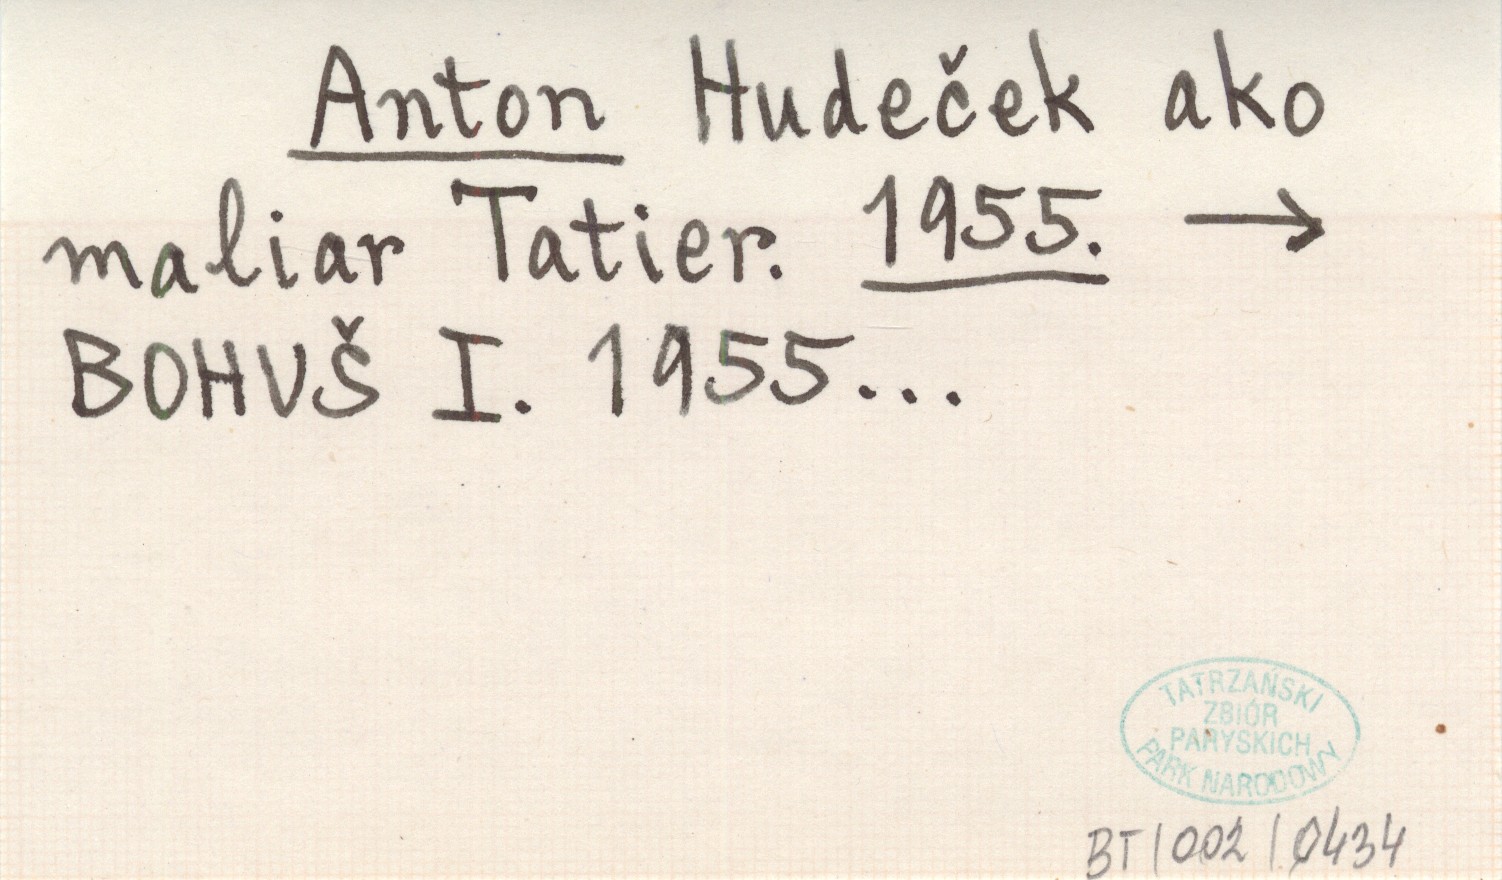 Anton Hudeček ako
maliar Tatier. 1955. →
BOHUŠ I. 1955...
TATRZAŃSKI
ZBIÓR
PARYSKICH
PARK NARODOWY
BT/002/0434